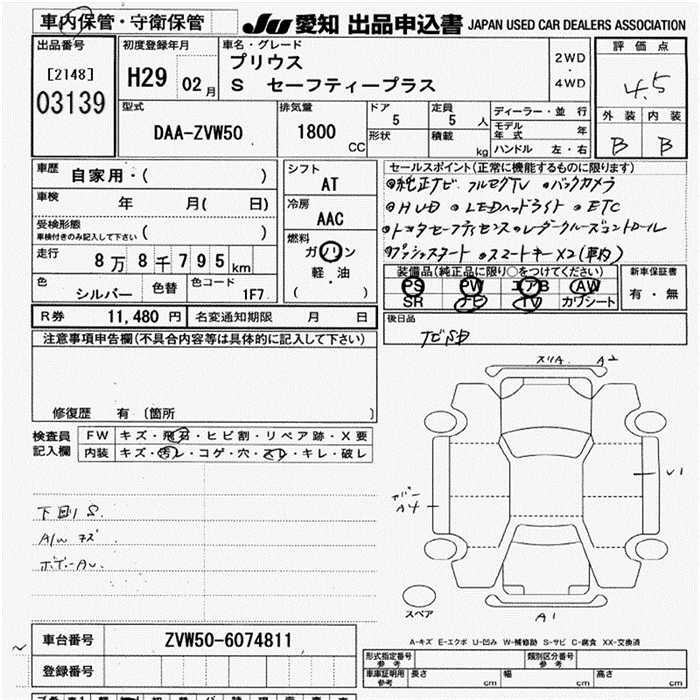 車内保管・守衛保管
JU 愛知 出品申込書 JAPAN USED CAR DEALERS ASSOCIATION
出品番号
[2148]
03139
初度登録年月
H29 02月
車名・グレード
プリウス
S セーフティープラス
2WD
・
4WD
評価点
4.5
外装 内装
B B
型式
DAA-ZVW50
排気量
1800 CC
ドア
5
定員
5 人
形状
積載
kg
ディーラー・並行
モデル年式 年
ハンドル 左・右
車歴
自家用・( )
車検
年 月( 日)
受検形態
車検付きのみ記入して下さい ( )
走行
8万8千795km
色
シルバー
色替
色コード
1F7
シフト
AT
冷房
AAC
燃料
ガソリン
軽・油
( )
セールスポイント(正常に機能するものに限ります)
◎純正ナビ フルセグTV ◎バックカメラ
◎HUD ◎LEDヘッドライト ◎ETC
◎トヨタセーフティセンス◎レーダークルーズコントロール
◎プッシュスタート ◎スマートキーX2(車内)
装備品(純正品に限り○をつけてください)
PS PW エアB AW
SR ナビ TV カワシート
新車保証書
有・無
R券 11,480円 名変通知期限 月 日
後日品
ナビSD
注意事項申告欄(不具合内容等は具体的に記入して下さい)
修復歴 有 [箇所 ]
検査員
記入欄
FW キズ・飛石・ヒビ割・リペア跡・X要
内装 キズ・汚レ・コゲ・穴・スレ・キレ・破レ
下回りS.
A/W キズ.
ボデーAU.
スリA A2
U1
A4
A1
スペア
A-キズ E-エクボ U-凹み W-補修跡 S-サビ C-腐食 XX-交換済
車台番号 ZVW50-6074811
登録番号
型式指定番号
参考
類別区分番号
参考
車庫証明用
参考
長さ cm 幅 cm 高さ cm